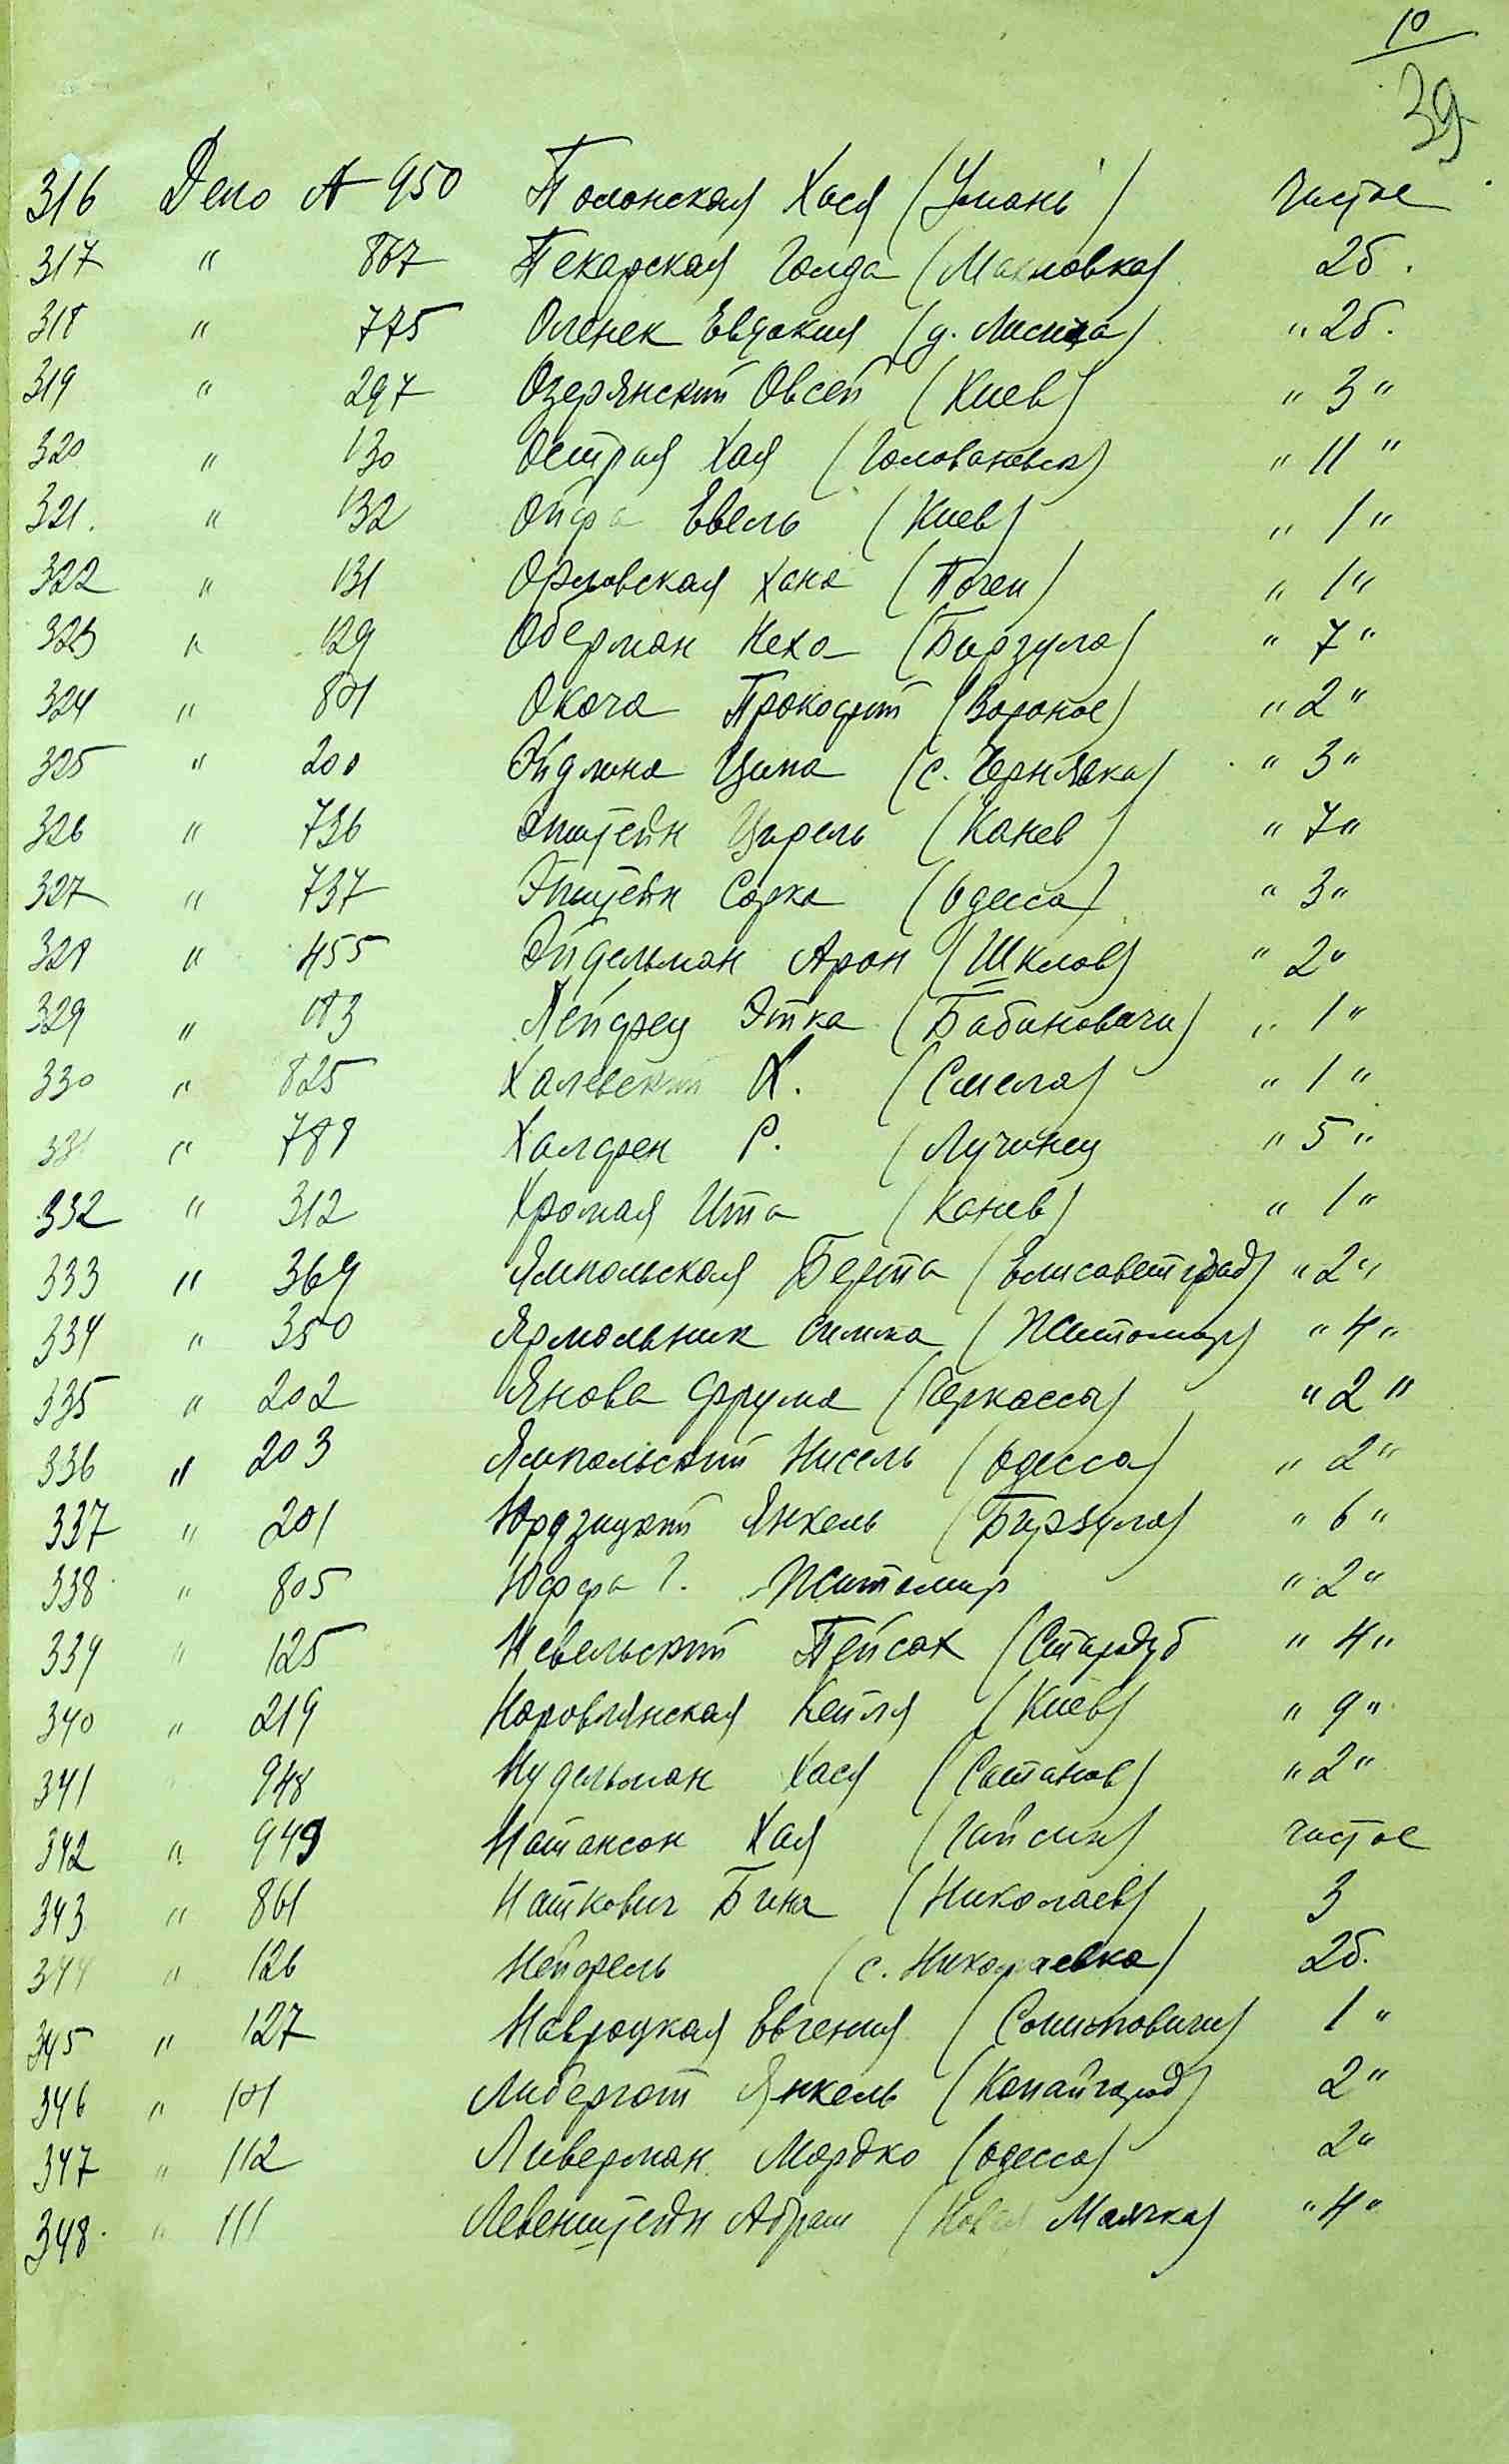 10
39
316 Дело № 950 Полонская Хася (Умань) чистое
317 " 867 Пекарская Голда (Махновка) 2б.
318 " 775 Оленек Евдокия (д. Лисица) " 2б.
319 " 297 Озерянский Овсей (Киев) " 3 "
320 " 130 Острая Хая (Голованевск) " 11 "
321. " 132 Ойфа Евель (Киев) " 1 "
322 " 131 Орловская Хана (Почеп) " 1 "
323 " 129 Оберман Неха (Бирзула) " 7 "
324 " 801 Окоча Прокофий (Вороное) " 2 "
325 " 200 Эйдлина Ципа (с. Чернявка) " 3 "
326 " 736 Эпштейн Цирель (Канев) " 7 "
327 " 737 Эпштейн Сорка (Одесса) " 3 "
328 " 455 Эйдельман Арон (Шклов) " 2 "
329 " 183 Хейфец Этка (Бабиновичи) " 1 "
330 " 825 Халевский Х. (Смела) " 1 "
331 " 788 Халфен Р. (Лучинец " 5 "
332 " 312 Хромая Ита (Канев) " 1 "
333 " 369 Ямпольская Берта (Елисаветград) " 2 "
334 " 350 Ярмольник Симка (Житомир) " 4 "
335 " 202 Янова Фрума (Черкассы) " 2 "
336 " 203 Ямпольский Нисель (Одесса) " 2 "
337 " 201 Юрдзицкий Янкель (Бирзула) " 6 "
338 " 805 Юффа Г. Житомир " 2 "
339 " 125 Невельский Пейсах (Стародуб " 4 "
340 " 219 Наровлянская Кейля (Киев) " 9 "
341 " 948 Нудельман Хася (Сатанов) " 2 "
342 " 949 Натансон Хая (Гайсин) чистое
343 " 861 Наткович Бина (Николаев) 3
344 " 126 Нейфель (с. Николаевка) 2б.
345 " 127 Навроцкая Евгения 1 "
346 " 101 Либергот Янкель (Копайгород) 2 "
347 " 112 Ливерман Мордко (Одесса) 2 "
348. " 111 Левенштейн Абрам (Новая Маячка) " 4 "